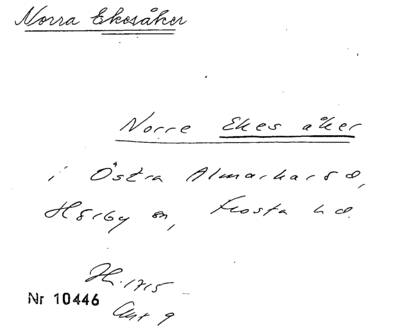 Norra Ekesåker
Norre Ekes åker
i Östra Almarharad,
Hörby sn, Frosta hd.
H. 1715
Nr 10446
Akt 9